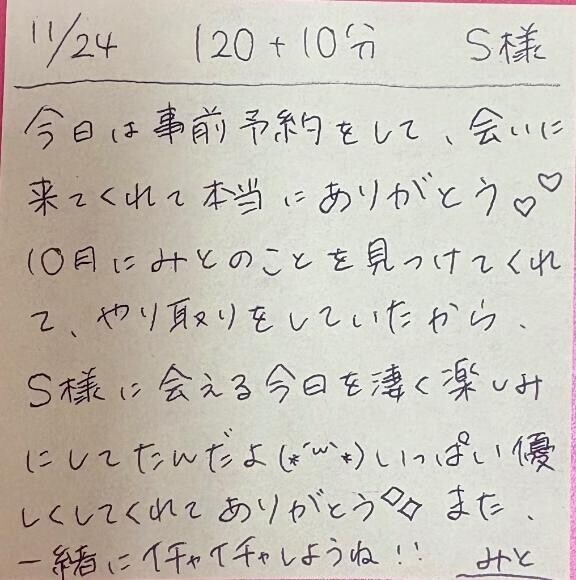 11/24 120+10分 S様
今日は事前予約をして、会いに
来てくれて本当にありがとう♡♡
10月にみとのことを見つけてくれ
て、やり取りをしていたから、
S様に会える今日を凄く楽しみ
にしてたんだよ(*´ω`*)いっぱい優
しくしてくれてありがとう◇◇また、
一緒にイチャイチャしようね!! みと